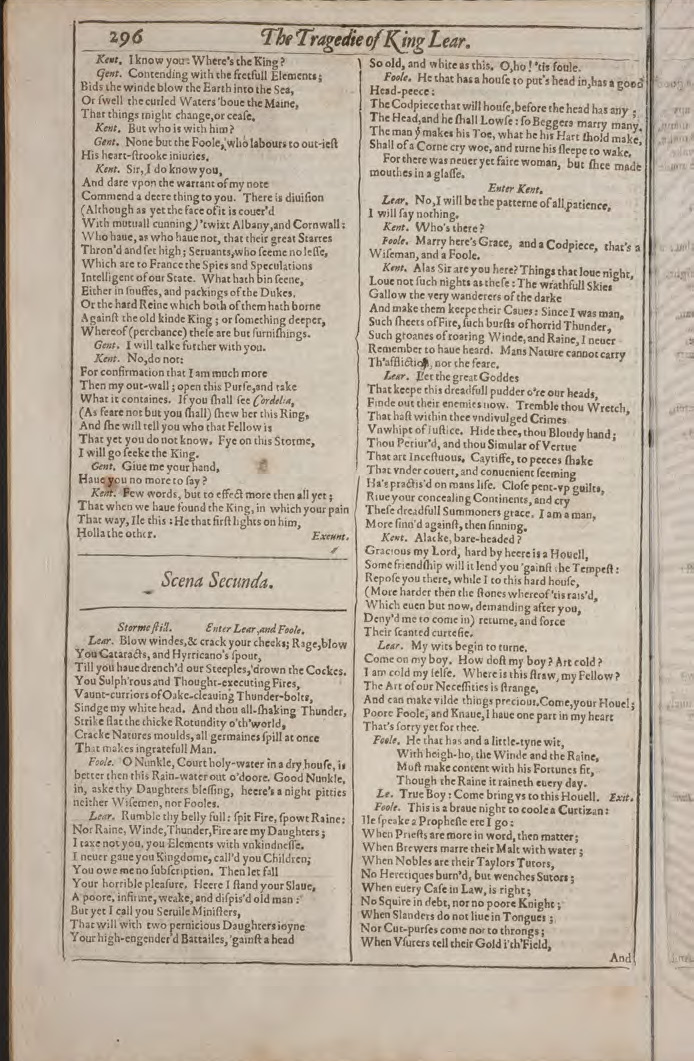 296
The Tragedie of King Lear.
Kent. I know you: Where's the King?
Gent. Contending with the fretfull Elements;
Bids the winde blow the Earth into the Sea,
Or ſwell the curled Waters 'boue the Maine,
That things might change, or ceaſe.
Kent. But who is with him?
Gent. None but the Foole, who labours to out-ieſt
His heart-ſtrooke iniuries.
Kent. Sir, I do know you,
And dare vpon the warrant of my note
Commend a deere thing to you. There is diuiſion
(Although as yet the face of it is couer'd
With mutuall cunning) 'twixt Albany, and Cornwall:
Who haue, as who haue not, that their great Starres
Thron'd and ſet high; Seruants, who ſeeme no leſſe,
Which are to France the Spies and Speculations
Intelligent of our State. What hath bin ſeene,
Either in ſnuffes, and packings of the Dukes,
Or the hard Reine which both of them hath borne
Againſt the old kinde King; or ſomething deeper,
Whereof (perchance) theſe are but furniſhings.
Gent. I will talke further with you.
Kent. No, do not:
For confirmation that I am much more
Then my out-wall; open this Purſe, and take
What it containes. If you ſhall ſee Cordelia,
(As feare not but you ſhall) ſhew her this Ring,
And ſhe will tell you who that Fellow is
That yet you do not know. Fye on this Storme,
I will go ſeeke the King.
Gent. Giue me your hand,
Haue you no more to ſay?
Kent. Few words, but to effect more then all yet;
That when we haue found the King, in which your pain
That way, Ile this: He that firſt lights on him,
Holla the other. Exeunt.
Scena Secunda.
Storme ſtill. Enter Lear, and Foole.
Lear. Blow windes, & crack your cheeks; Rage, blow
You Cataracts, and Hyrricano's ſpout,
Till you haue drench'd our Steeples, drown the Cockes.
You Sulph'rous and Thought-executing Fires,
Vaunt-curriors of Oake-cleauing Thunder-bolts,
Sindge my white head. And thou all-ſhaking Thunder,
Strike flat the thicke Rotundity o'th'world,
Cracke Natures moulds, all germaines ſpill at once
That makes ingratefull Man.
Foole. O Nunkle, Court holy-water in a dry houſe, is
better then this Rain-water out o'doore. Good Nunkle,
in, aske thy Daughters bleſſing, heere's a night pitties
neither Wiſemen, nor Fooles.
Lear. Rumble thy belly full: ſpit Fire, ſpowt Raine:
Nor Raine, Winde, Thunder, Fire are my Daughters;
I taxe not you, you Elements with vnkindneſſe.
I neuer gaue you Kingdome, call'd you Children;
You owe me no ſubſcription. Then let fall
Your horrible pleaſure. Heere I ſtand your Slaue,
A poore, infirme, weake, and diſpis'd old man:
But yet I call you Seruile Miniſters,
That will with two pernicious Daughters ioyne
Your high-engender'd Battailes, 'gainſt a head
So old, and white as this. O, ho! 'tis foule.
Foole. He that has a houſe to put's head in, has a good
Head-peece:
The Codpiece that will houſe, before the head has any;
The Head, and he ſhall Lowſe: ſo Beggers marry many.
The man ẏ makes his Toe, what he his Hart ſhold make,
Shall of a Corne cry woe, and turne his ſleepe to wake.
For there was neuer yet faire woman, but ſhee made
mouthes in a glaſſe.
Enter Kent.
Lear. No, I will be the patterne of all patience,
I will ſay nothing.
Kent. Who's there?
Foole. Marry here's Grace, and a Codpiece, that's a
Wiſeman, and a Foole.
Kent. Alas Sir are you here? Things that loue night,
Loue not ſuch nights as theſe: The wrathfull Skies
Gallow the very wanderers of the darke
And make them keepe their Caues: Since I was man,
Such ſheets of Fire, ſuch burſts of horrid Thunder,
Such groanes of roaring Winde, and Raine, I neuer
Remember to haue heard. Mans Nature cannot carry
Th'affliction, nor the feare.
Lear. Let the great Goddes
That keepe this dreadfull pudder o're our heads,
Finde out their enemies now. Tremble thou Wretch,
That haſt within thee vndivulged Crimes
Vnwhipt of Iuſtice. Hide thee, thou Bloudy hand;
Thou Periur'd, and thou Simular of Vertue
That art Inceſtuous. Caytiffe, to peeces ſhake
That vnder couert, and conuenient ſeeming
Ha's practis'd on mans life. Cloſe pent-vp guilts,
Riue your concealing Continents, and cry
Theſe dreadfull Summoners grace. I am a man,
More ſinn'd againſt, then ſinning.
Kent. Alacke, bare-headed?
Gracious my Lord, hard by heere is a Houell,
Some friendſhip will it lend you 'gainſt the Tempeſt:
Repoſe you there, while I to this hard houſe,
(More harder then the ſtones whereof 'tis rais'd,
Which euen but now, demanding after you,
Deny'd me to come in) returne, and force
Their ſcanted curteſie.
Lear. My wits begin to turne.
Come on my boy. How doſt my boy? Art cold?
I am cold my ſelfe. Where is this ſtraw, my Fellow?
The Art of our Neceſſities is ſtrange,
And can make vilde things precious. Come, your Houel;
Poore Foole, and Knaue, I haue one part in my heart
That's ſorry yet for thee.
Foole. He that has and a little-tyne wit,
With heigh-ho, the Winde and the Raine,
Muſt make content with his Fortunes fit,
Though the Raine it raineth euery day.
Le. True Boy: Come bring vs to this Houell. Exit.
Foole. This is a braue night to coole a Curtizan:
Ile ſpeake a Propheſie ere I go:
When Prieſts are more in word, then matter;
When Brewers marre their Malt with water;
When Nobles are their Taylors Tutors,
No Heretiques burn'd, but wenches Sutors;
When euery Caſe in Law, is right;
No Squire in debt, nor no poore Knight;
When Slanders do not liue in Tongues;
Nor Cut-purſes come not to throngs;
When Vſurers tell their Gold i'th'Field,
And